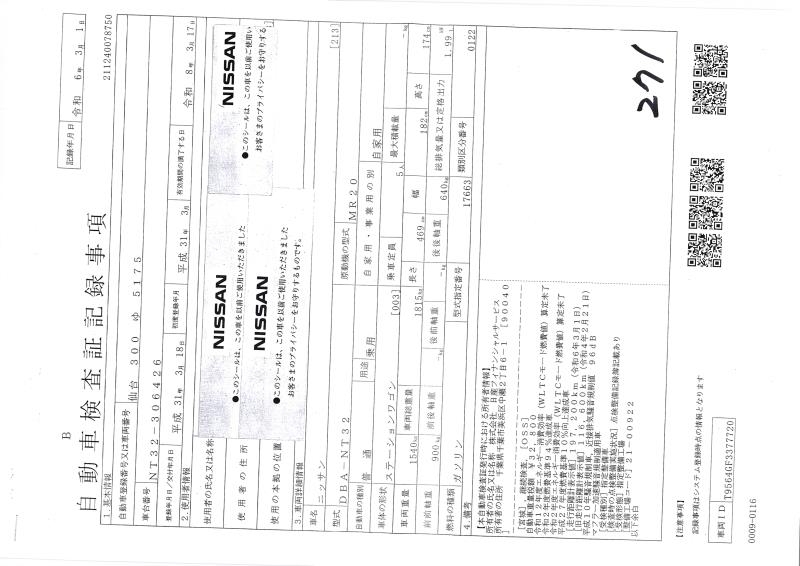 B
自動車検査証記録事項
記録年月日 令和 6年 3月 1日
211240078750
1.基本情報
自動車登録番号又は車両番号 仙台 300 ゆ 5175
車台番号 NT32-306426
登録年月日/交付年月日 平成 31年 3月 18日 初度登録年月 平成 31年 3月 有効期間の満了する日 令和 8年 3月 17日
2.使用者情報
使用者の氏名又は名称
使用者の住所
使用の本拠の位置
NISSAN
●このシールは、この車を以前ご使用いただきました
NISSAN
●このシールは、この車を以前ご使用いただきました
お客さまのプライバシーをお守りするものです。
NISSAN
●このシールは、この車を以前ご使用い
お客さまのプライバシーをお守りする
3.車両詳細情報
車名 ニッサン [213]
型式 DBA-NT32 原動機の型式 MR20
自動車の種別 普通 用途 乗用 自家用・事業用の別 自家用
車体の形状 ステーションワゴン [003] 乗車定員 5人 最大積載量 -kg
車両重量 1540kg 車両総重量 1815kg 長さ 469cm 幅 182cm 高さ 174cm
前前軸重 900kg 前後軸重 -kg 後前軸重 -kg 後後軸重 640kg 総排気量又は定格出力 1.99L
燃料の種類 ガソリン 型式指定番号 17663 類別区分番号 0122
4.備考
【本自動車検査証発行時における所有者情報】
所有者の氏名又は名称 株式会社 日産フィナンシャルサービス
所有者の住所 千葉県千葉市美浜区中瀬2丁目6-1 [90040
[宮城], 継続検査, [OSS]
令和12年度エネルギー消費効率(WLTCモード燃費値)算定未了
令和2年度エネルギー消費効率(WLTCモード燃費値)算定未了
平成27年度燃費基準10%向上達成車
[走行距離計表示値] 197,200km (令和6年3月1日)
[旧走行距離計表示値] 116,600km (令和4年2月21日)
平成10年騒音規制車, 近接排気騒音規制値 96dB
マフラー加速騒音規制適用車
[受検形態] 指定整備車
[検査時の点検整備実施状況] 点検整備記録簿記載あり
以下余白
271
【注意事項】
記録事項はシステム登録時点の情報となります
車両ID T9564GF3377720
0009-0116